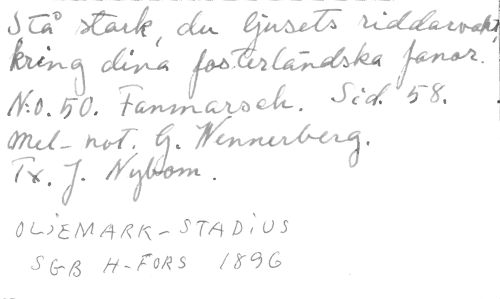 Stå stark, du ljusets riddarvakt,
kring dina fosterländska fanor.
N:o. 50. Fanmarsch. Sid. 58.
Mel- not. G. Wennerberg.
Tx. J. Nybom.
OLJEMARK-STADIUS
SGB H-FORS 1896